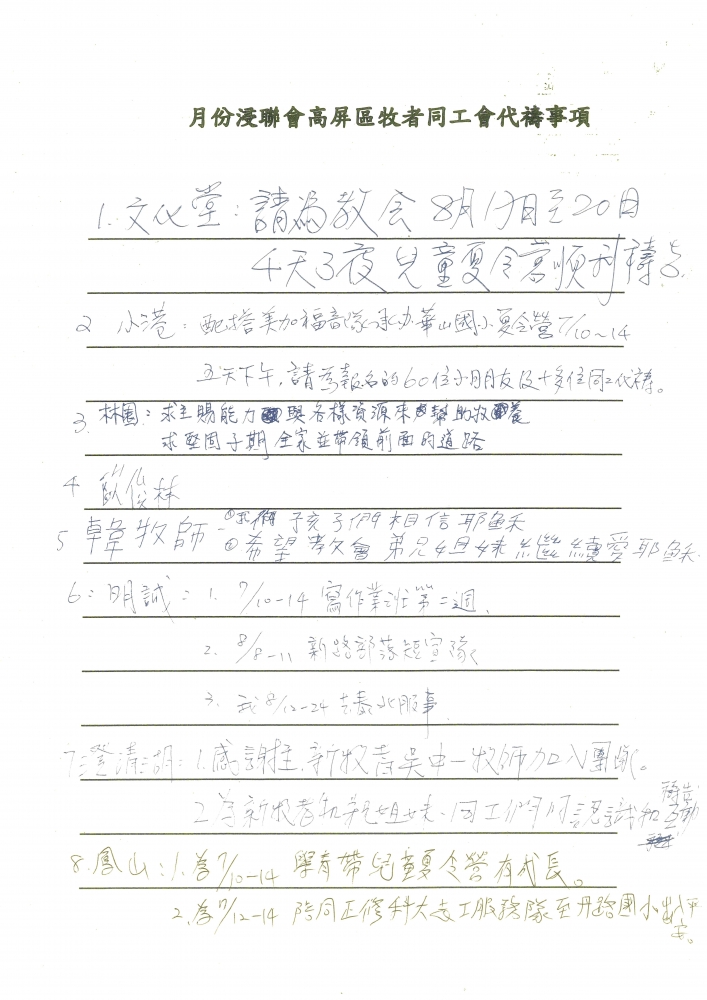 月份浸聯會高屏區牧者同工會代禱事項
1. 文化堂：請為教会 8月17日至20日
4天3夜兒童夏令營順利禱告
2 小港：配搭美加福音隊承办華山國小夏令營7/10~14
五天下午，請為報名的60位小朋友及十多位同工代禱。
3. 林園：求主賜能力與各樣資源來幫助牧養
求堅固子期全家並帶領前面的道路
4 俊林
5 韓牧師 ① 孩子們相信耶穌
② 希望教會弟兄姐妹繼續愛耶穌.
6：明誠：1. 7/10-14 寫作業班第二週.
2. 8/8-11 新路部落短宣隊
3. 我8/12-24 去泰北服事
7.澄清湖：1.感謝主,新牧者吳中一牧師加入團隊。
2為新牧者和兄姐妹、同工們的認識和互動禱告
8.鳳山：1.為7/10-14 學青帶兒童夏令營有成長。
2.為7/12-14 陪同正修科大志工服務隊至丹路國小出入平
安。